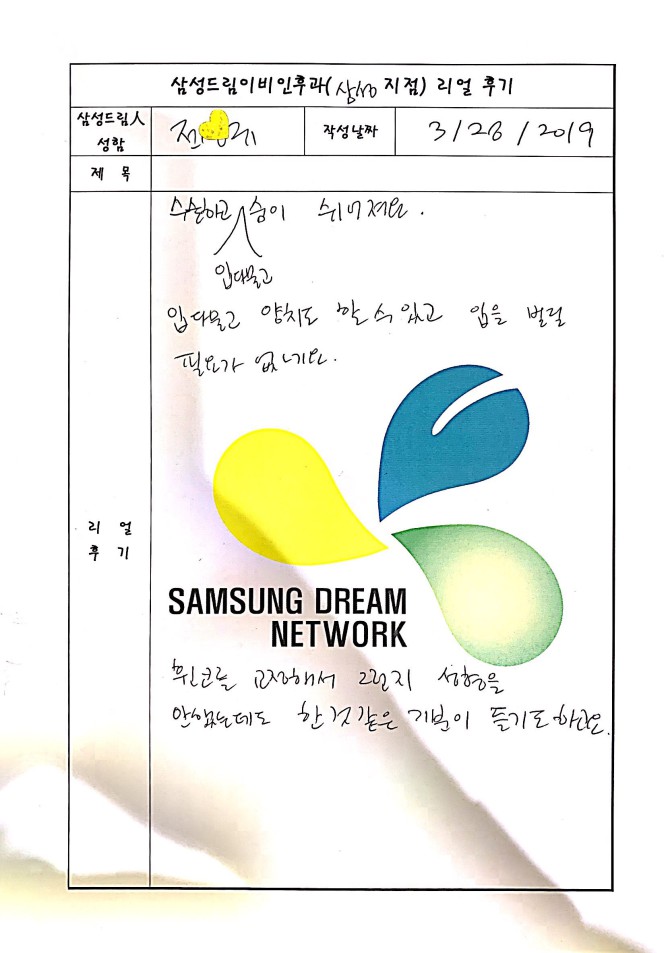 삼성드림이비인후과(삼성 지점) 리얼 후기
삼성드림人
성함
작성날짜
3/28/2019
제 목
리 얼
후 기
수술하고 숨이 쉬어져요.
입다물고
입다물고 양치도 할 수 있고 입을 벌릴
필요가 없네요.
SAMSUNG DREAM
NETWORK
휜코를 교정해서 그런지 성형을
안했는데도 한 것 같은 기분이 들기도 하고요.